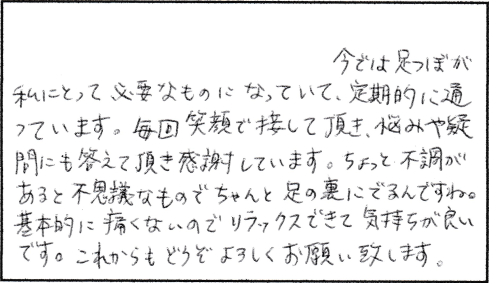 今では足つぼが
私にとって必要なものになっていて、定期的に通
っています。毎回笑顔で接して頂き、悩みや疑
問にも答えて頂き感謝しています。ちょっと不調が
あると不思議なものでちゃんと足の裏にでるんですね。
基本的に痛くないのでリラックスできて気持ちが良い
です。これからもどうぞよろしくお願い致します。